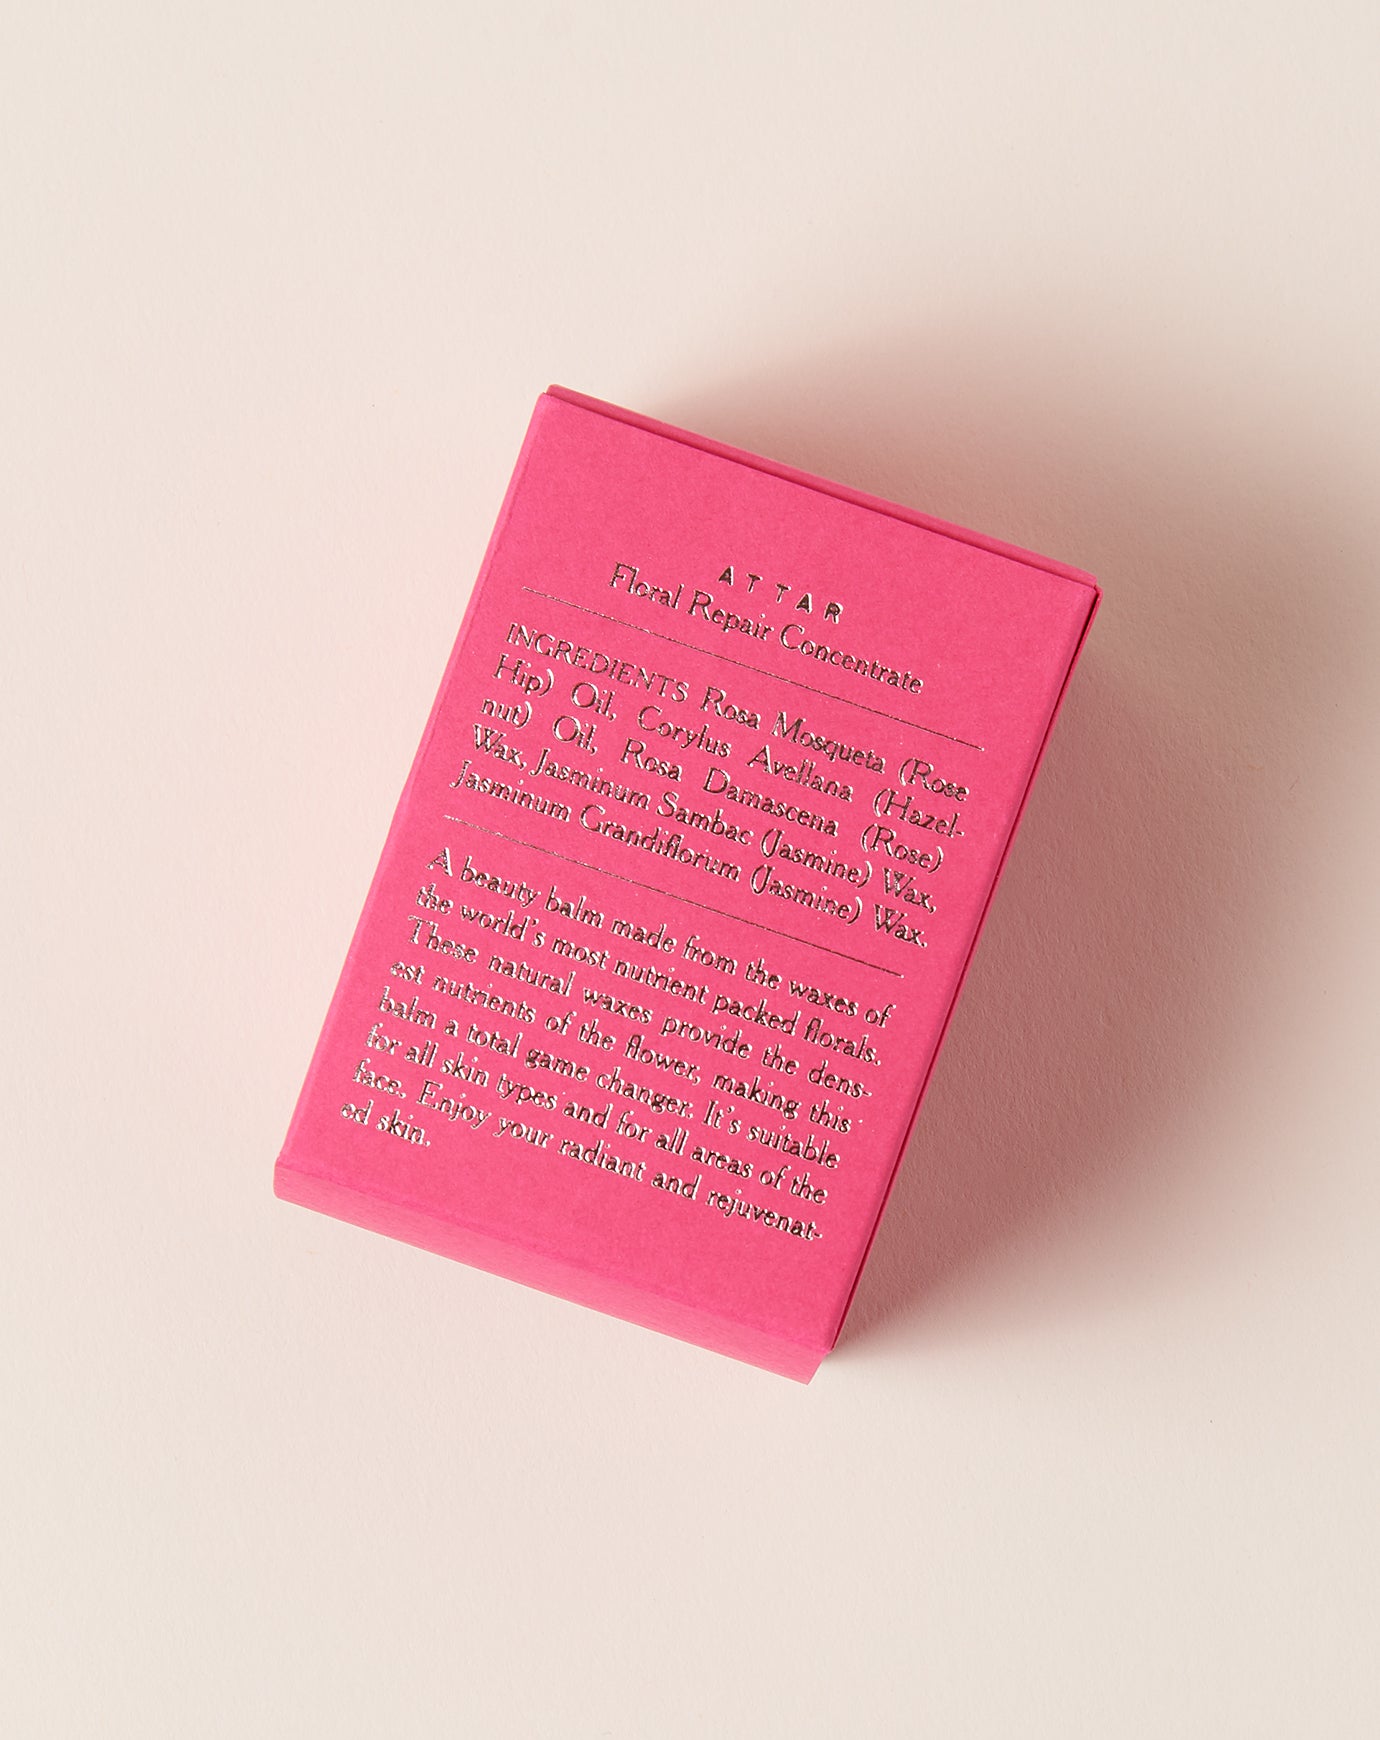 ATTAR
Floral Repair Concentrate
INGREDIENTS Rosa Mosqueta (Rose
Hip) Oil, Corylus Avellana (Hazel-
nut) Oil, Rosa Damascena (Rose)
Wax, Jasminum Sambac (Jasmine) Wax,
Jasminum Grandiflorum (Jasmine) Wax.
A beauty balm made from the waxes of
the world's most nutrient packed florals.
These natural waxes provide the dens-
est nutrients of the flower, making this
balm a total game changer. It's suitable
for all skin types and for all areas of the
face. Enjoy your radiant and rejuvenat-
ed skin.